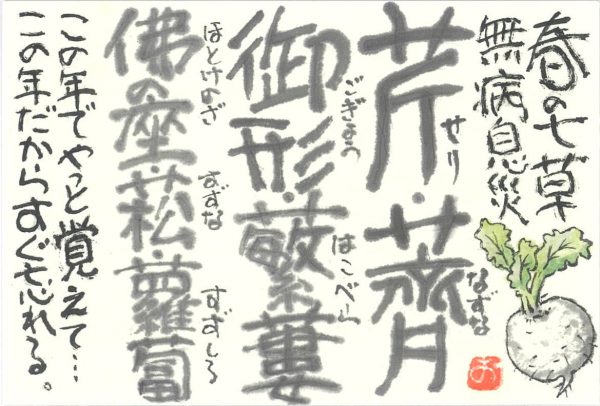 春の七草
無病息災
せり なずな
芹・薺
ごぎょう はこべら
御形・蘩蔞
ほとけのざ すずな すずしろ
佛の座・菘・蘿蔔
この年でやっと覚えて…
この年だからすぐ忘れる。